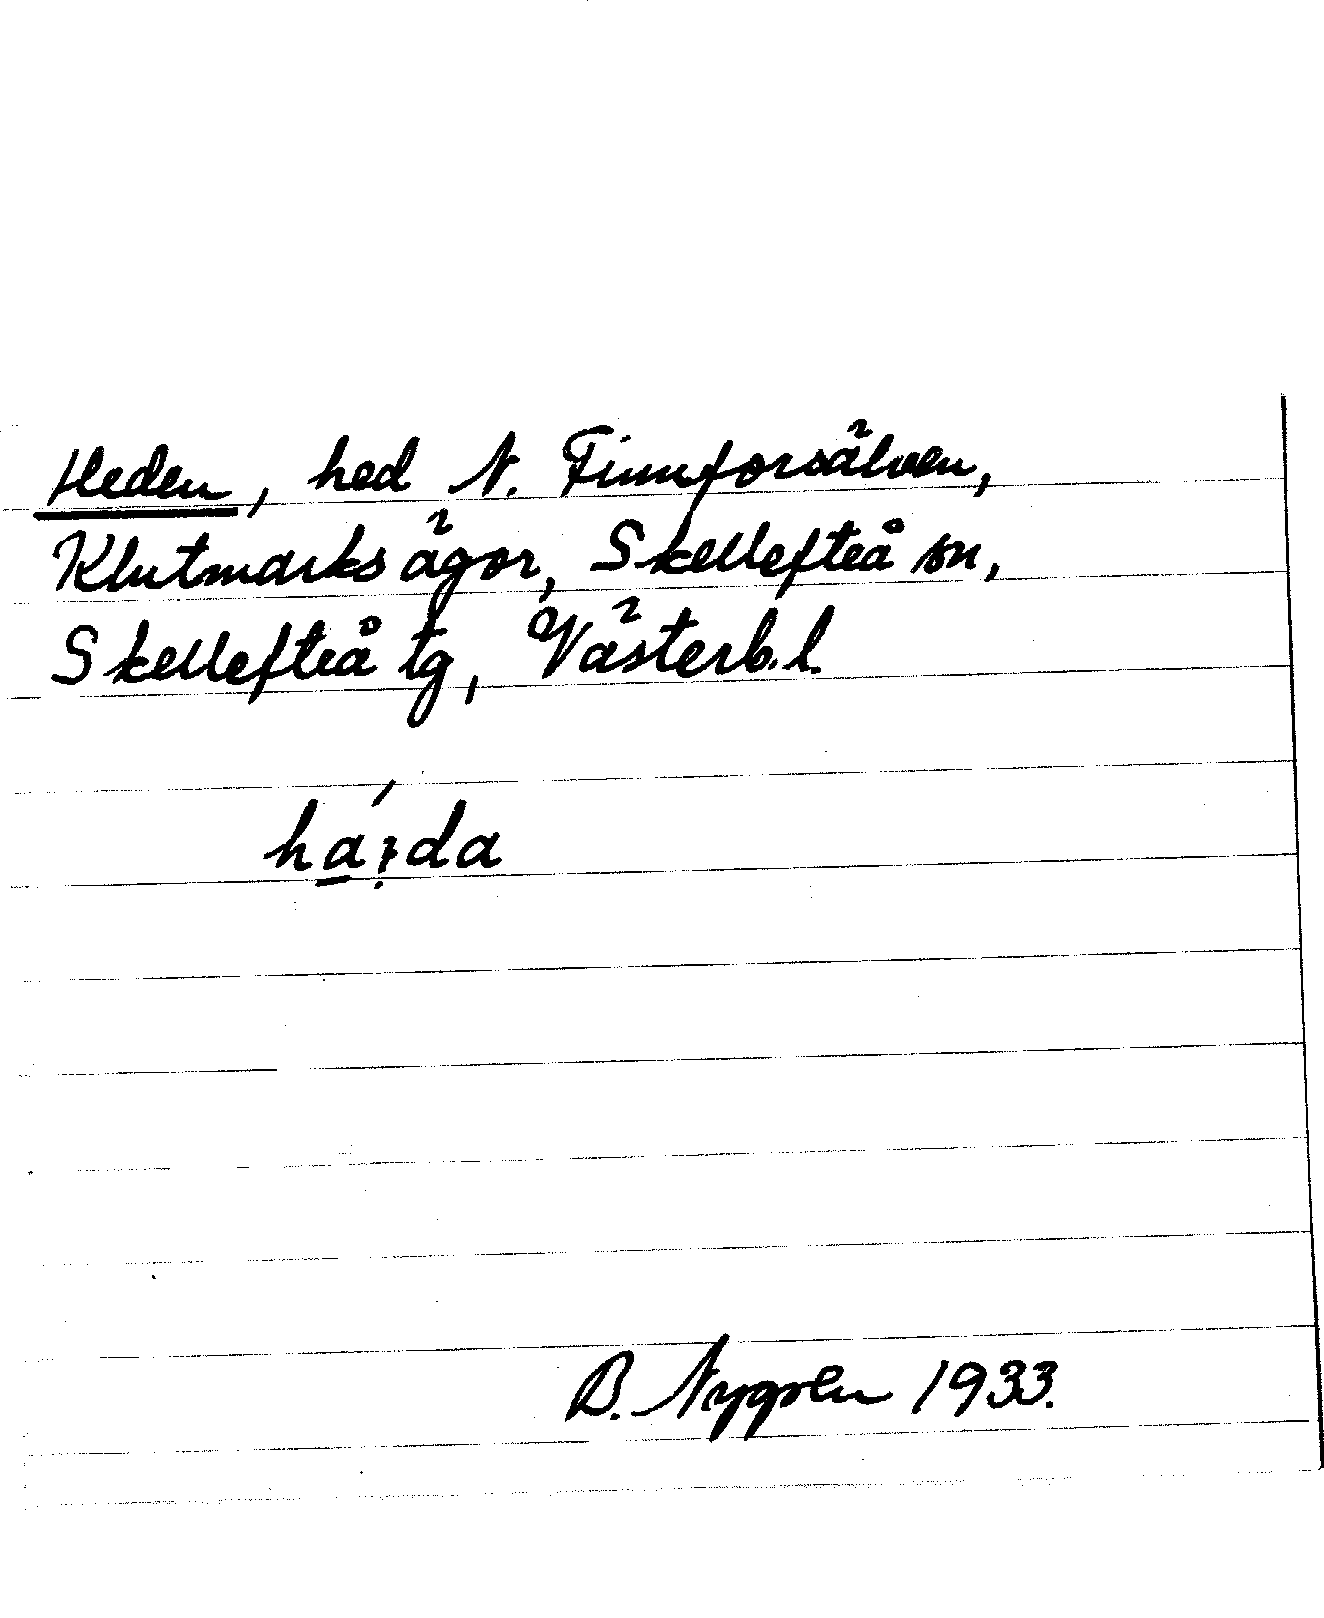 Heden, hed N. Finnforsälven,
Klutmarks ägor, Skellefteå sn,
Skellefteå tg, Västerb. l.
B. Nygren 1933.